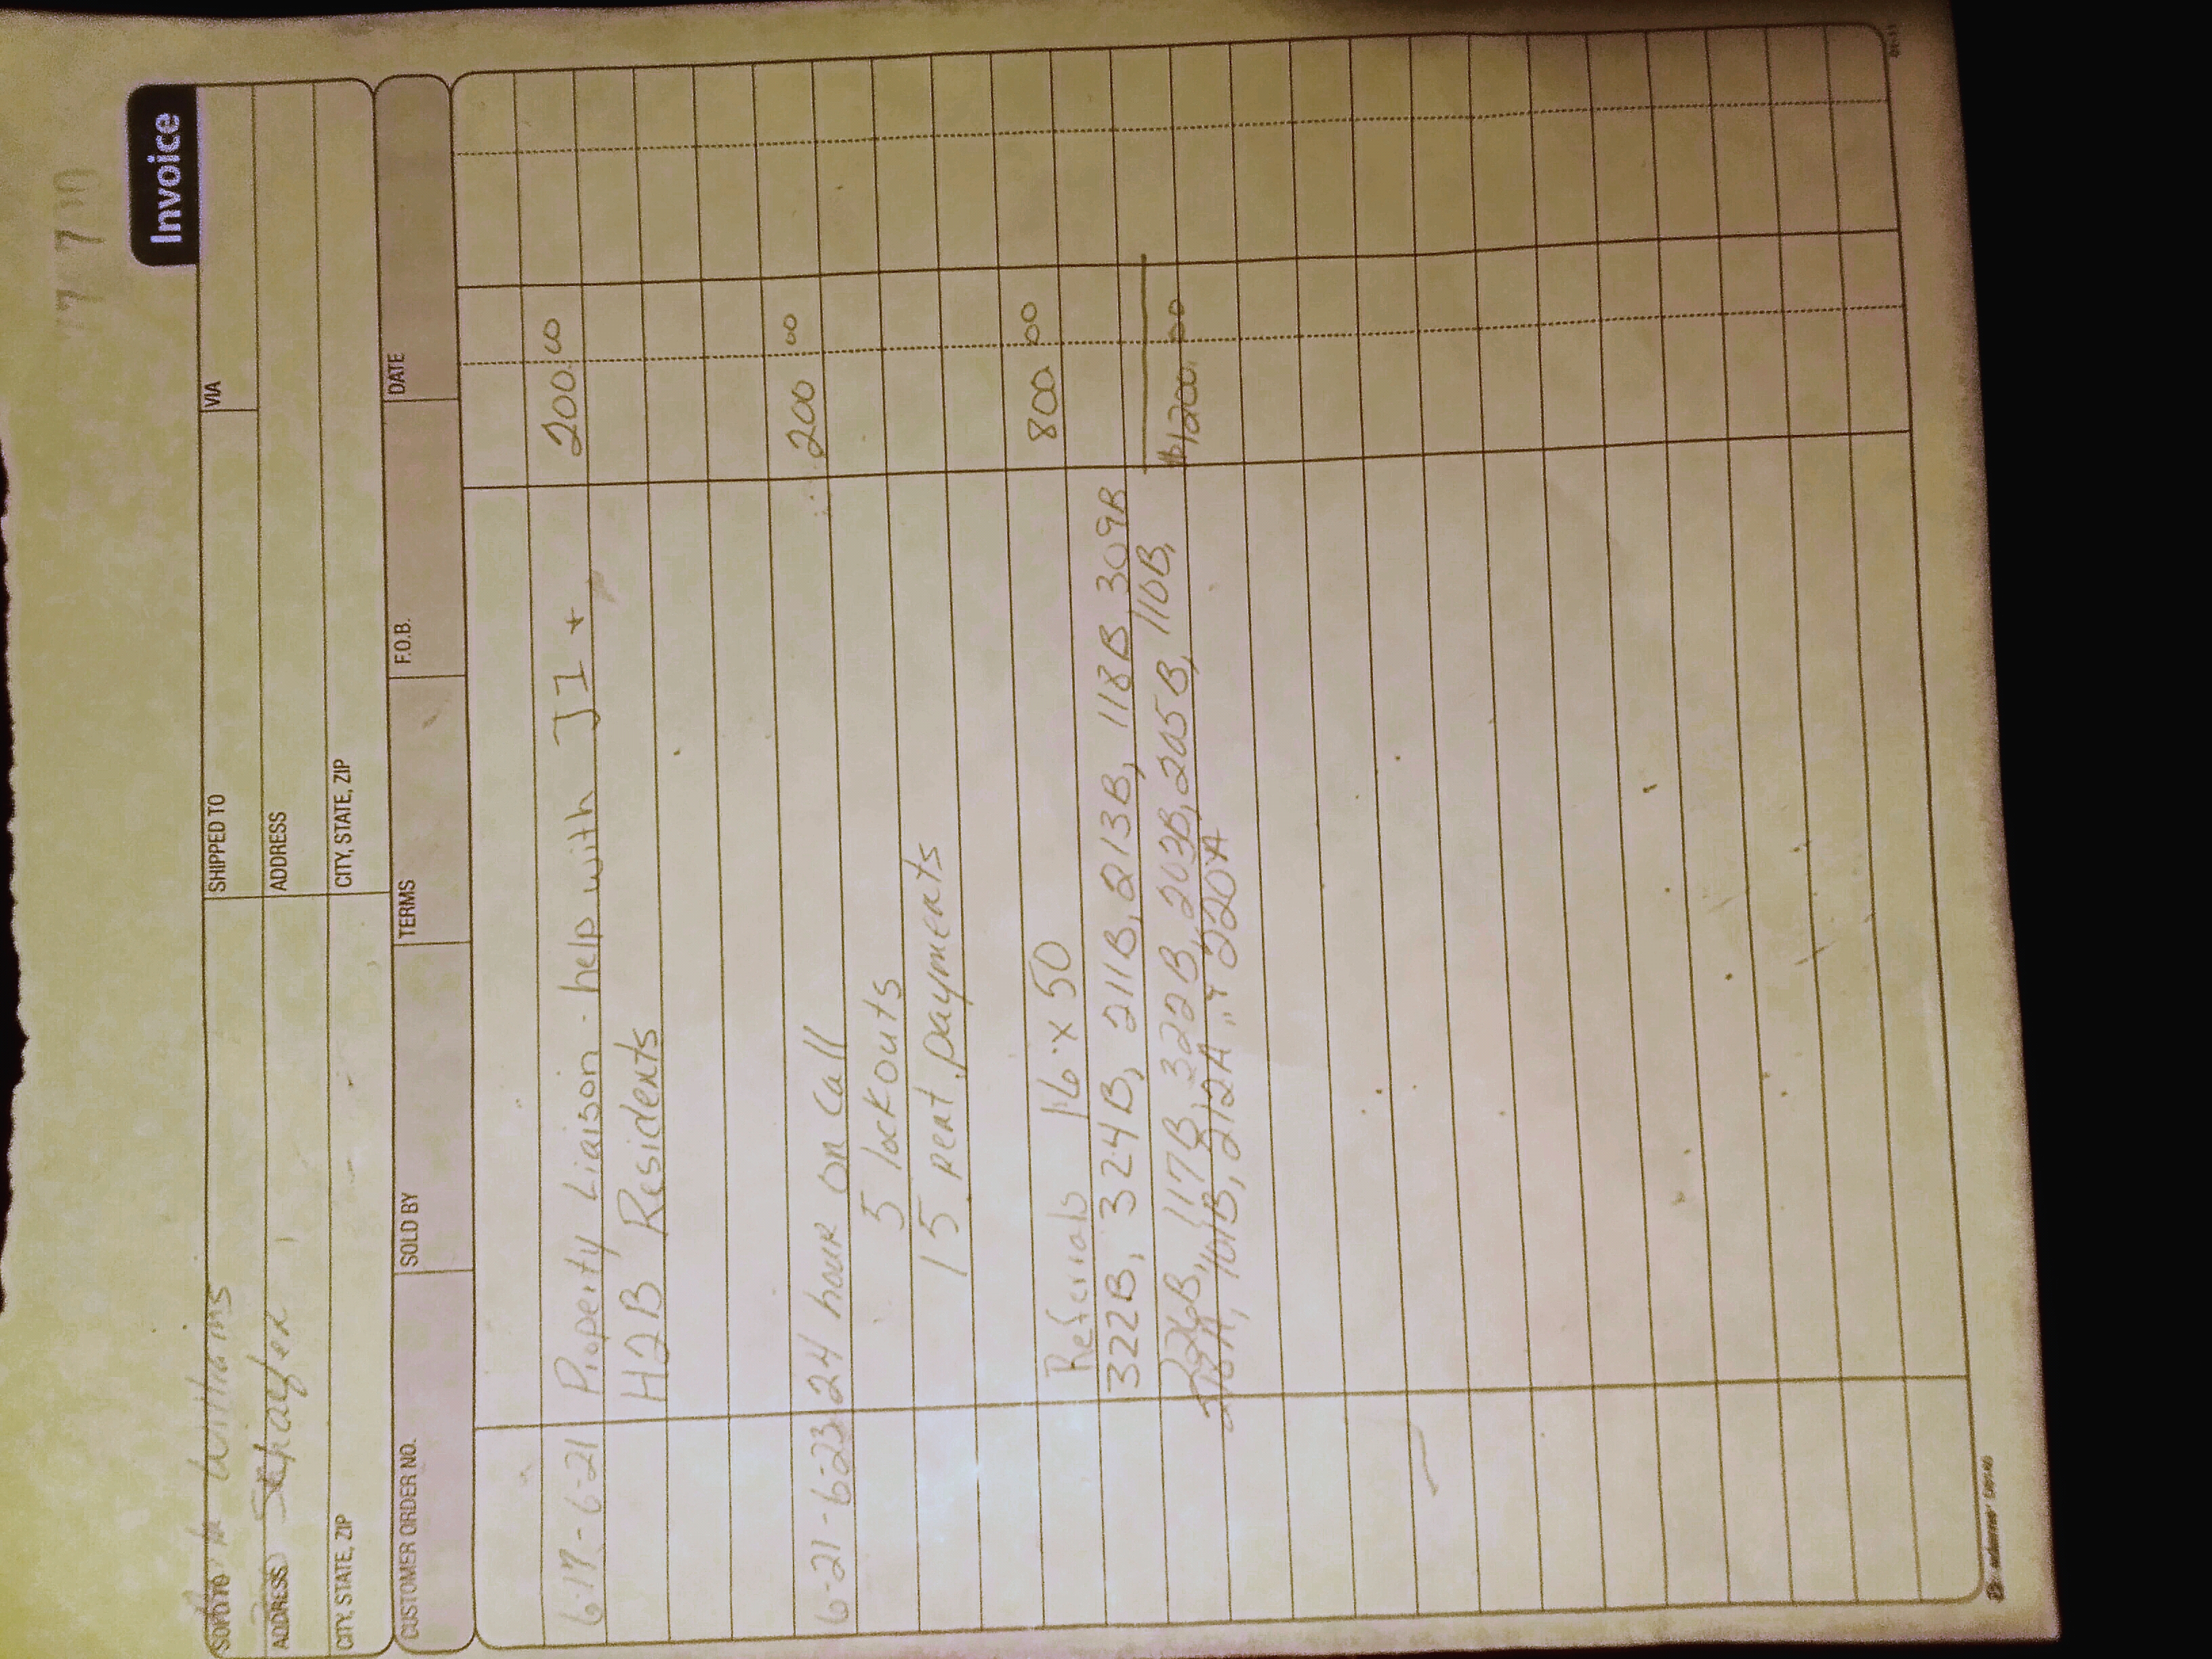 Invoice
SOLD TO Williams SHIPPED TO VIA
ADDRESS ADDRESS
CITY, STATE, ZIP CITY, STATE, ZIP
CUSTOMER ORDER NO. SOLD BY TERMS F.O.B. DATE
6-17-6-21 Property Liaison - help with J1 + 200.00
H2B Residents
6-21-6-23 24 hour on call 200 00
5 lockouts
15 rent payments
Referrals 16 x 50 800. 00
322B, 324B, 211B, 213B, 118B, 309B
226B, 117B, 322B, 203B, 205B, 110B, $1200.00
218A, 101B, 212A, + 220A